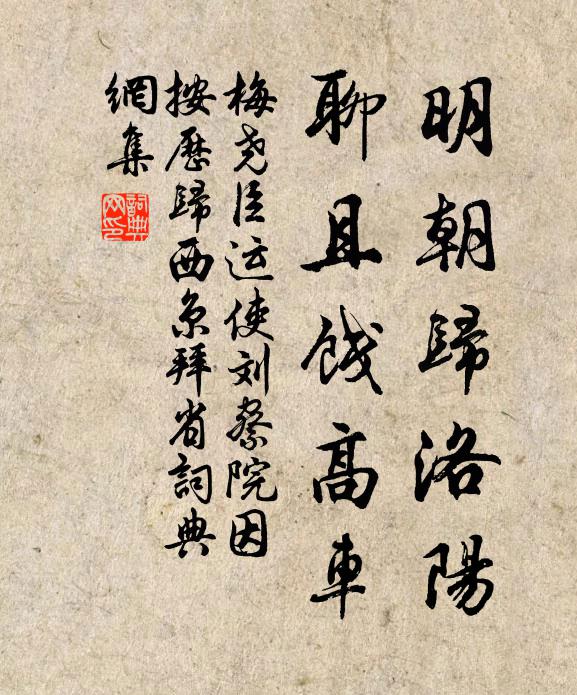 明朝歸洛陽
聊且餞高車
梅尧臣运使刘察院因
按歷歸西京拜省詞典
網集
詞典
网印